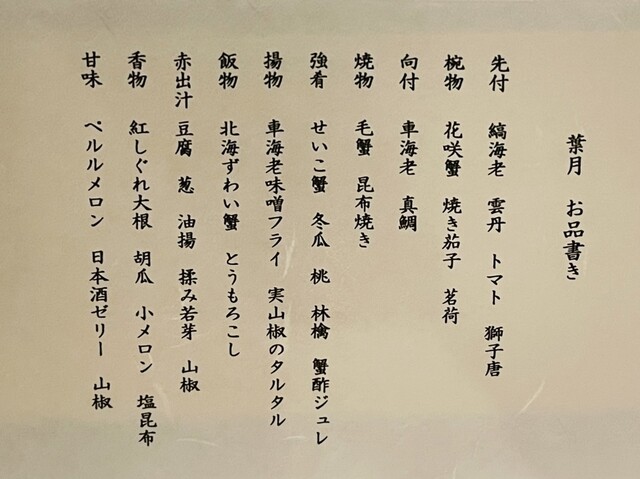 葉月　お品書き
先付　縞海老　雲丹　トマト　獅子唐
椀物　花咲蟹　焼き茄子　茗荷
向付　車海老　真鯛
焼物　毛蟹　昆布焼き
強肴　せいこ蟹　冬瓜　桃　林檎　蟹酢ジュレ
揚物　車海老味噌フライ　実山椒のタルタル
飯物　北海ずわい蟹　とうもろこし
赤出汁　豆腐　葱　油揚　揉み若芽　山椒
香物　紅しぐれ大根　胡瓜　小メロン　塩昆布
甘味　ペルルメロン　日本酒ゼリー　山椒